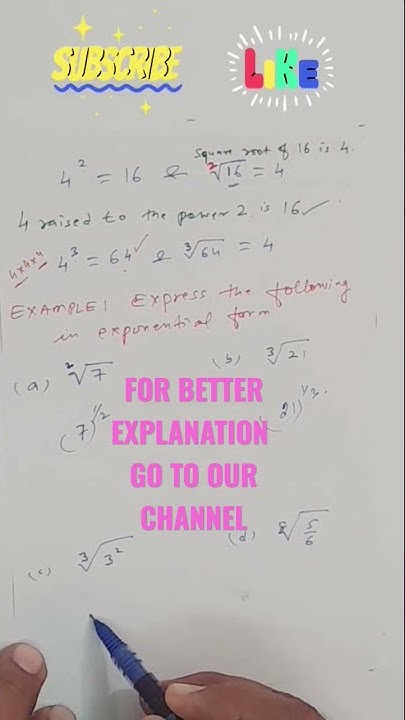 SUBSCRIBE LIKE
square root of 16 is 4.
4² = 16 & ²√16 = 4
4 raised to the power 2 is 16 ✓
4×4×4 4³ = 64 ✓ & ³√64 = 4
EXAMPLE 1 Express the following
in exponential form
(a) ²√7 (b) ³√21
FOR BETTER
(7)^1/2 EXPLANATION (21)^1/3.
GO TO OUR
CHANNEL
(c) ³√3² (d) ⁸√5/6